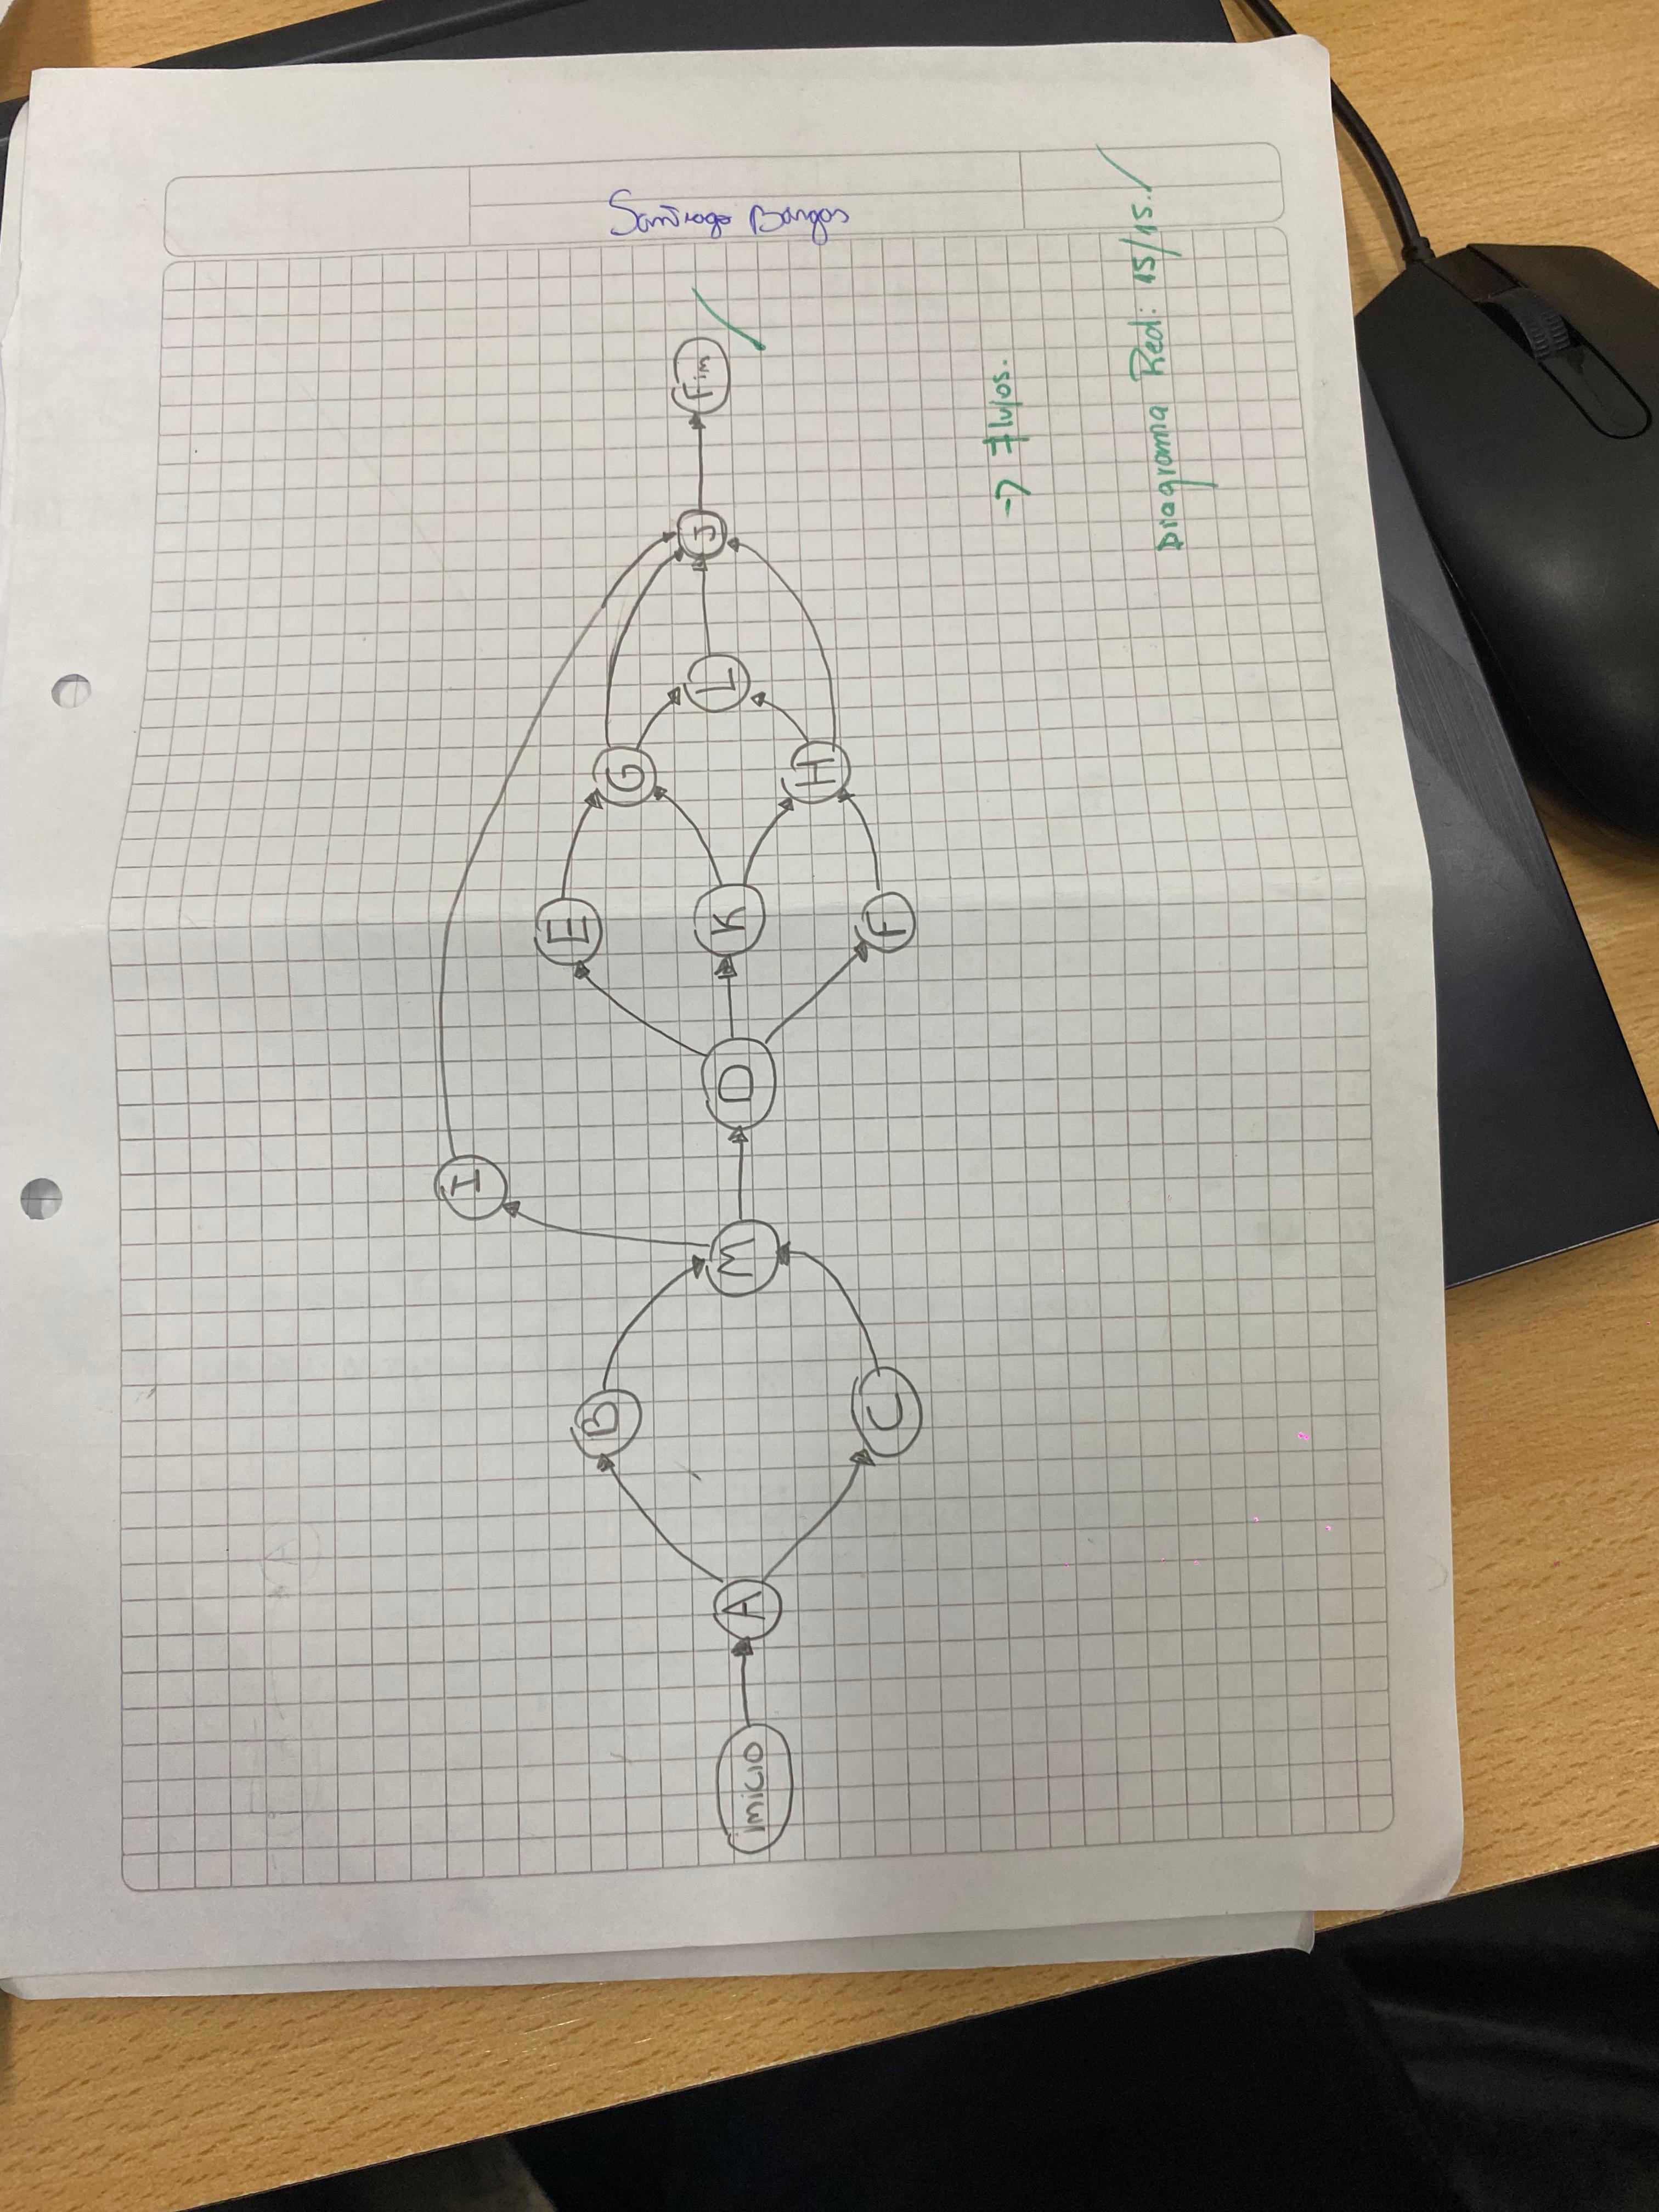 Santiago Bargas
inicio
A
B
C
M
I
D
E
K
F
G
H
L
J
Fim
→ Flujos.
Diagrama Red: 15/15.